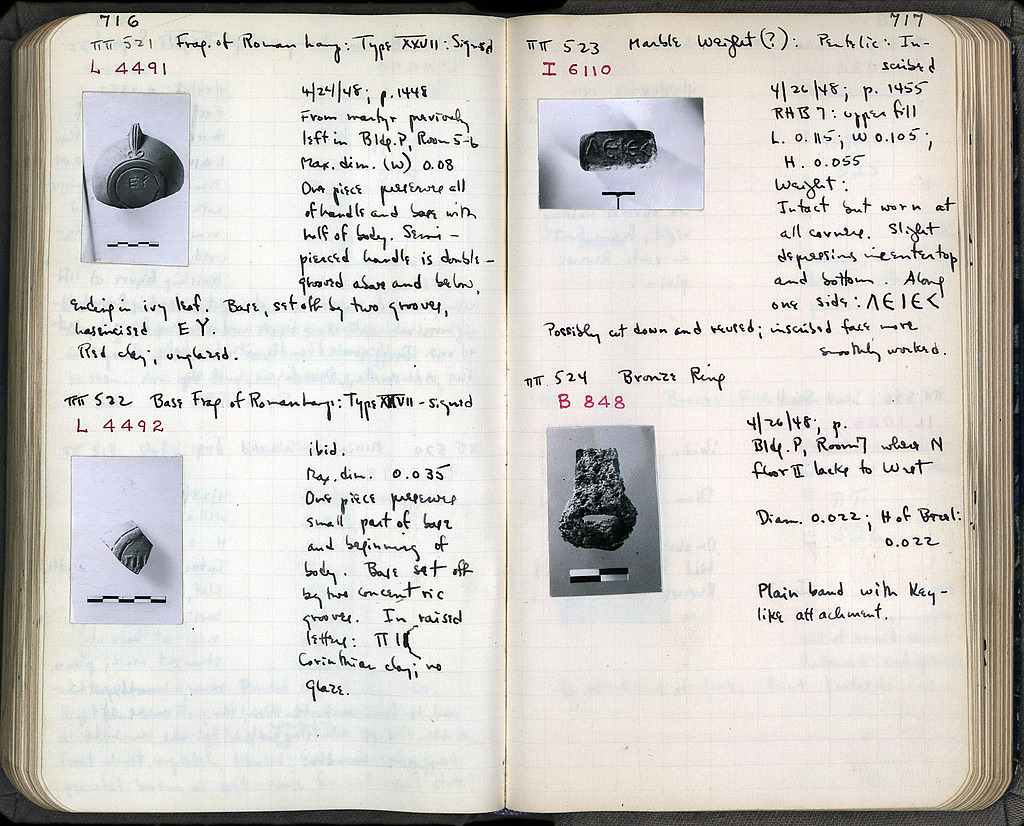 716
ΠΠ 521 Frag. of Roman Lamp: Type XXVII: Signed
L 4491
4/24/48; p. 1448
From martyr previously
left in Bldg. P, Room 5-6
Max. dim. (W) 0.08
One piece preserves all
of handle and base with
half of body. Semi-
pierced handle is double-
grooved above and below,
ending in ivy leaf. Base, set off by two grooves,
has incised ΕΥ.
Red clay; unglazed.
ΕΥ
ΠΠ 522 Base Frag of Roman Lamp: Type XXVII - signed
L 4492
ibid.
Max. dim. 0.035
One piece preserves
small part of base
and beginning of
body. Base set off
by two concentric
grooves. In raised
letters: ΠΙ
Corinthian clay; no
glaze.
717
ΠΠ 523 Marble Weight(?): Pentelic: In-
scribed
I 6110
4/26/48; p. 1455
RHB 7: upper fill
L. 0.115; W 0.105;
H. 0.055
Weight:
Intact but worn at
all corners. Slight
depressions in center top
and bottom. Along
one side: ΛΕΙΕΚ
Possibly cut down and reused; inscribed face more
smoothly worked.
ΠΠ 524 Bronze Ring
B 848
4/26/48; p.
Bldg. P, Room 7 where N
floor II lacks to West
Diam. 0.022; H of Bezel:
0.022
Plain band with key-
like attachment.